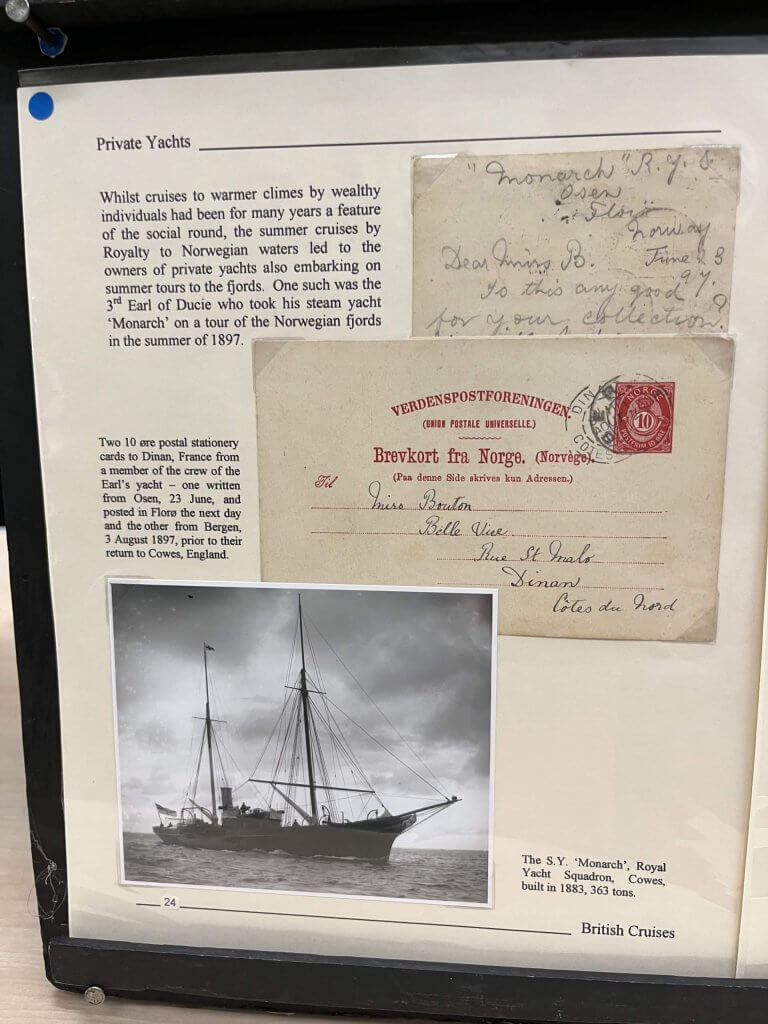 Private Yachts
Whilst cruises to warmer climes by wealthy
individuals had been for many years a feature
of the social round, the summer cruises by
Royalty to Norwegian waters led to the
owners of private yachts also embarking on
summer tours to the fjords. One such was the
3rd Earl of Ducie who took his steam yacht
'Monarch' on a tour of the Norwegian fjords
in the summer of 1897.
"Monarch" R.Y.S.
Osen
Florö
Norway
Dear Miss B. June 23
97.
Is this any good
for your collection?
Two 10 øre postal stationery
cards to Dinan, France from
a member of the crew of the
Earl's yacht – one written
from Osen, 23 June, and
posted in Florø the next day
and the other from Bergen,
3 August 1897, prior to their
return to Cowes, England.
VERDENSPOSTFORENINGEN.
(UNION POSTALE UNIVERSELLE.)
Brevkort fra Norge. (Norvège).
(Paa denne Side skrives kun Adressen.)
Til
Miss Bouton
Belle Vue
Rue St Malo
Dinan
Côtes du Nord
NORGE
10
POSTFRIM 10 ØRE
DINAN
COTES
The S.Y. 'Monarch', Royal
Yacht Squadron, Cowes,
built in 1883, 363 tons.
24
British Cruises